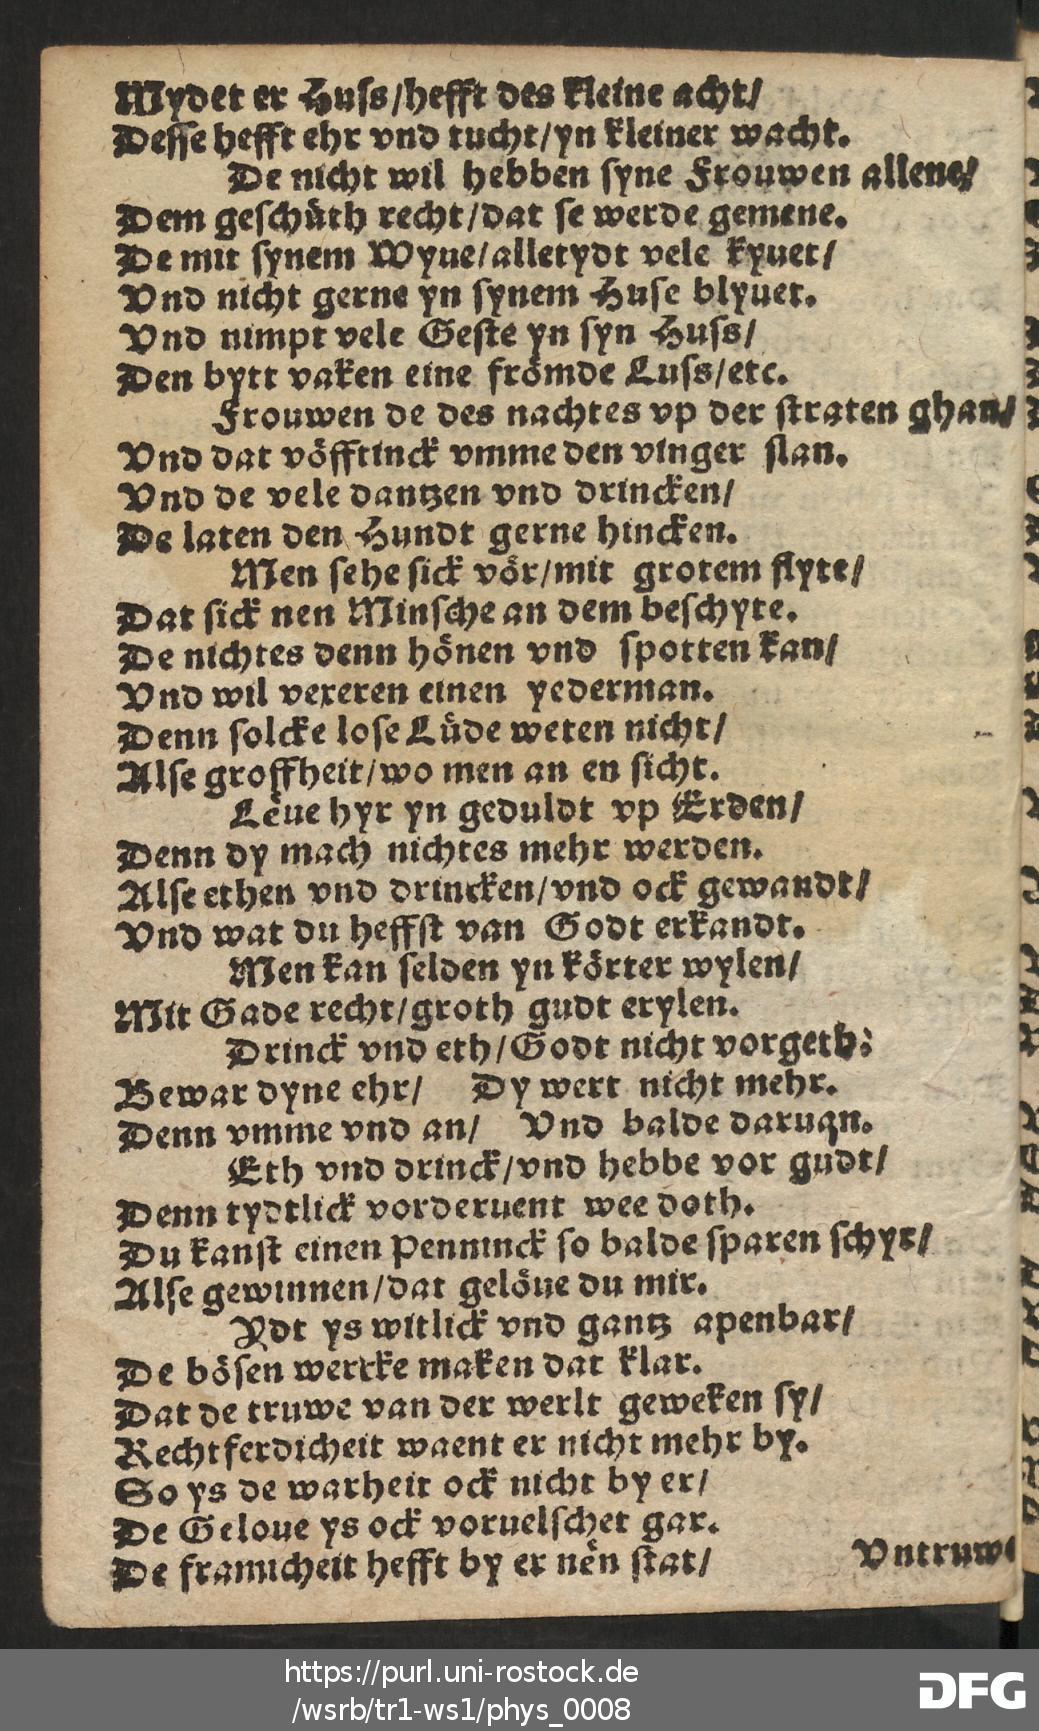 Mydet er Huſs/hefft des kleine acht/
Deſſe hefft ehr vnd tucht/yn kleiner wacht.
De nicht wil hebben ſyne Frouwen allene/
Dem geſchüth recht/dat ſe werde gemene.
De mit ſynem Wyue/alletydt vele kyuet/
Vnd nicht gerne yn ſynem Huſe blyuet.
Vnd nimpt vele Geſte yn ſyn Huſs/
Den bytt vaken eine frömde Luſs/etc.
Frouwen de des nachtes vp der ſtraten ghan/
Vnd dat vöfftinck vmme den vinger ſlan.
Vnd de vele dantzen vnd drincken/
De laten den Hundt gerne hincken.
Men ſehe ſick vör/mit grotem flyte/
Dat ſick nen Minſche an dem beſchyte.
De nichtes denn hönen vnd ſpotten kan/
Vnd wil vexeren einen yederman.
Denn ſolcke loſe Lüde weten nicht/
Alſe groffheit/wo men an en ſicht.
Lëue hyr yn geduldt vp Erden/
Denn dy mach nichtes mehr werden.
Alſe ethen vnd drincken/vnd ock gewandt/
Vnd wat du heffſt van Godt erkandt.
Men kan ſelden yn körter wylen/
Mit Gade recht/groth gudt erylen.
Drinck vnd eth/Godt nicht vorgeth:
Bewar dyne ehr/ Dy wert nicht mehr.
Denn vmme vnd an/ Vnd balde daruan.
Eth vnd drinck/vnd hebbe vor gudt/
Denn tydtlick vorderuent wee doth.
Du kanſt einen Penninck ſo balde ſparen ſchyr/
Alſe gewinnen/dat gelöue du mir.
Ydt ys witlick vnd gantz apenbar/
De böſen wercke maken dat klar.
Dat de truwe van der werlt geweken ſy/
Rechtferdicheit waent er nicht mehr by.
So ys de warheit ock nicht by er/
De Geloue ys ock voruelſchet gar.
De framicheit hefft by er nën ſtat/
Vntruwe
https://purl.uni-rostock.de
/wsrb/tr1-ws1/phys_0008
DFG